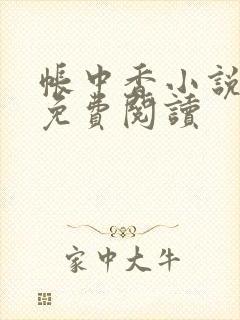 帳中香小說
免費閱讀
家中大牛